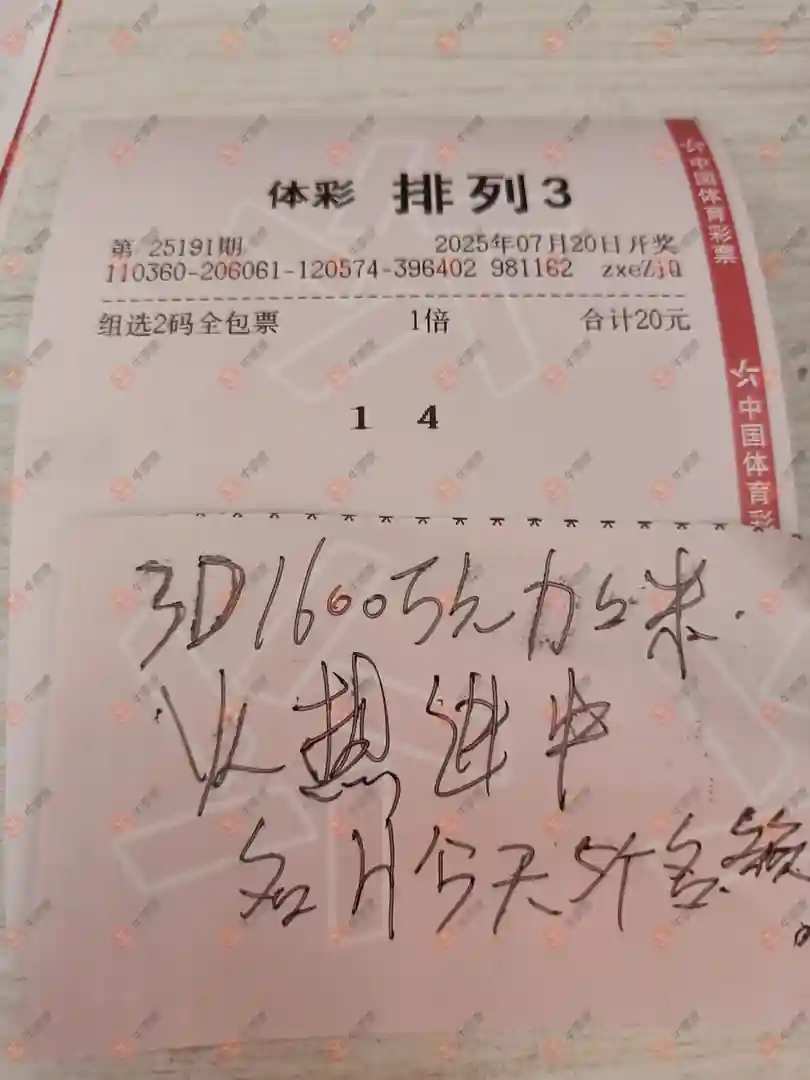 体彩 排列3
第 25191期 2025年07月20日开奖
110360-206061-120574-396402 981162 zxeZjQ
组选2码全包票 1倍 合计20元
1 4
中国体育彩票
中国体育彩
3D1600万元加奖.
火热继中
名片今天5个名额